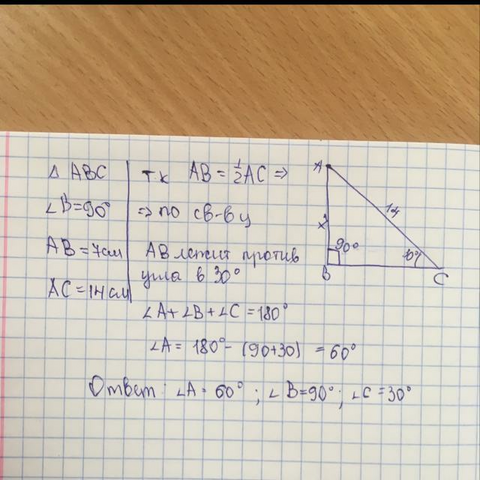 Δ ABC
∠B=90°
AB=7см
AC=14см
тк AB=½AC ⇒
⇒ по св-ву
AB лежит против
угла в 30°
∠A+∠B+∠C=180°
∠A= 180°-(90+30) =60°
Ответ: ∠A=60°; ∠B=90°; ∠C=30°
A
14
90°
B
C